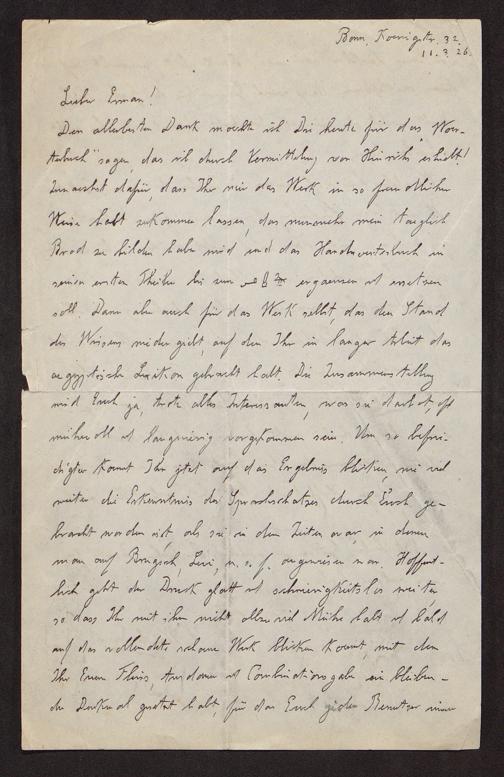 Bonn, Koenigstr. 32.
11.3.26.
Lieber Erman!
Den allerbesten Dank moechte ich Dir heute für das „Woer-
terbuch" sagen, das ich durch Vermittelung von Hinrichs erhielt!
Zunaechst dafür, dass Ihr mir das Werk in so freundlicher
Weise habt zukommen lassen, das nunmehr mein taeglich
Brod zu bilden haben wird und das Handwoerterbuch in
seinen ersten Theilen bis zum ergaenzen ut ersetzen
soll. Dann aber auch für das Werk selbst, das den Stand
des Wissens wiedergiebt, auf den Ihr in langer Arbeit das
aegyptische Lexikon gebracht habt. Die Zusammenstellung
wird Euch ja, trotz alles Interessanten, was sie darbot, oft
mühevoll ut langwierig vorgekommen sein. Um so befrie-
digter koennt Ihr jetzt auf das Ergebnis blicken, wie viel
weiter die Erkenntnis des Sprachschatzes durch Euch ge-
bracht worden ist, als sie in den Zeiten war, in denen
man auf Brugsch, Levi, u. s. f. angewiesen war. Hoffent-
lich geht der Druck glatt ut schwierigkeitslos weiter
so dass Ihr mit ihm nicht allzu viel Mühe habt ut bald
auf das vollendete, schoene Werk blicken koennt, mit dem
Ihr Eurem Fleiss, Ausdauer ut Combinationsgabe ein bleiben-
des Denkmal gesetzt habt, für das Euch jeder Benutzer immer